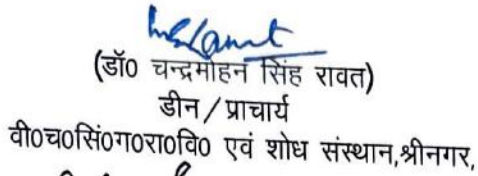 (डॉ0 चन्द्रमोहन सिंह रावत)
डीन / प्राचार्य
वी0च0सिं0ग0रा0वि0 एवं शोध संस्थान,श्रीनगर,